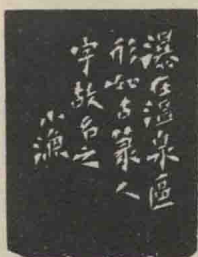 瀑在溫泉區
形如古篆人
字故名之
小漁